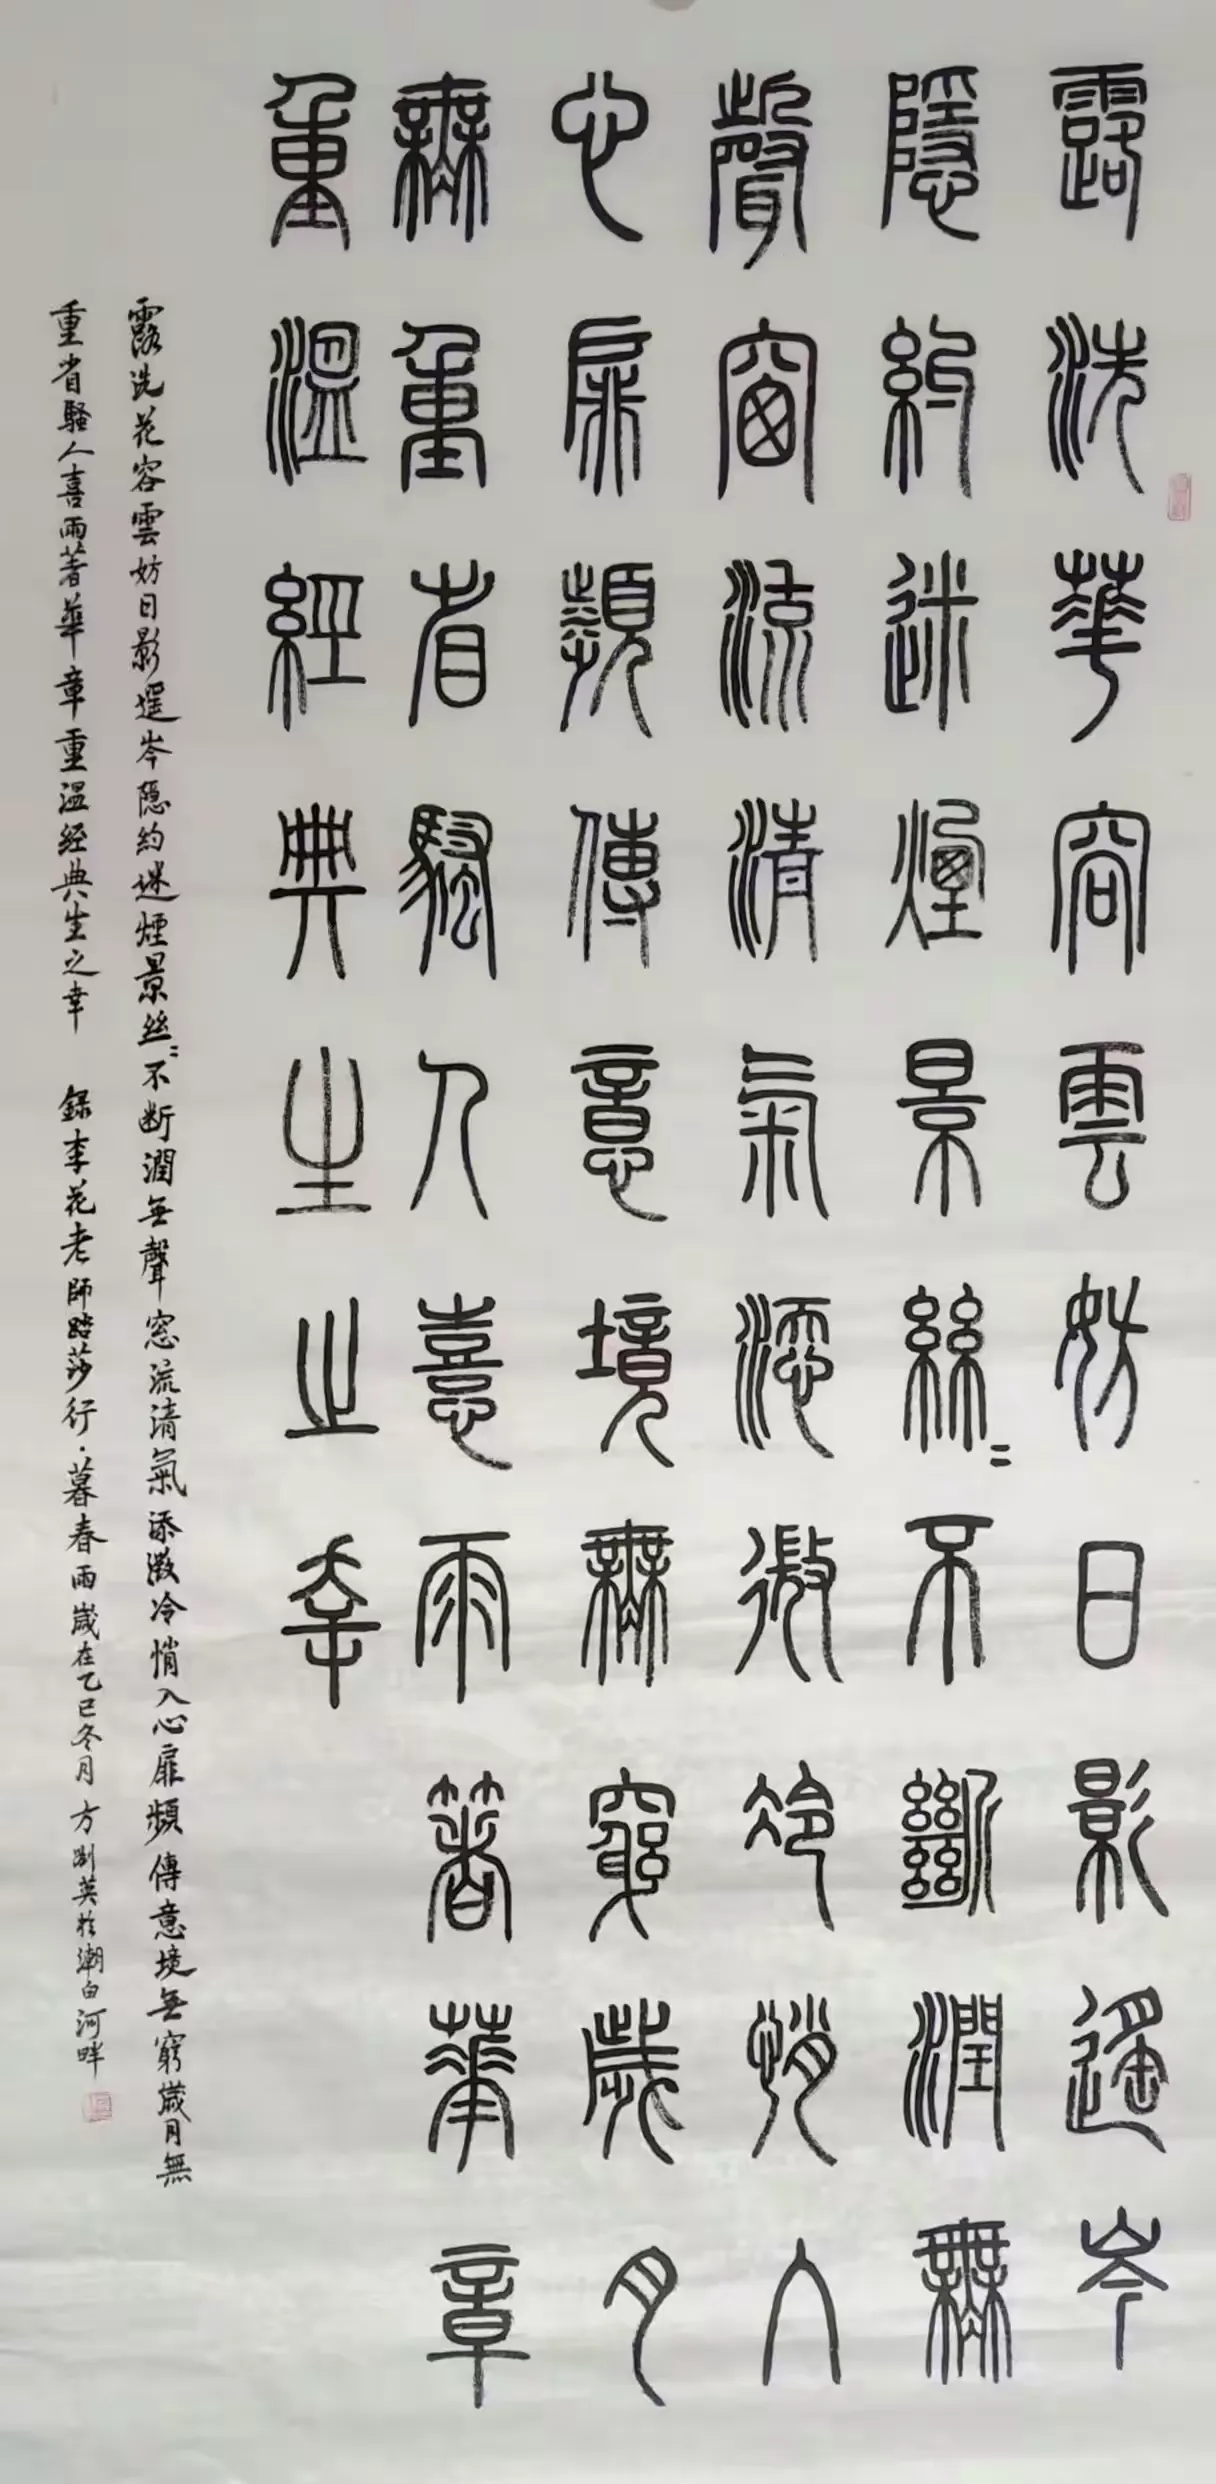 露洗華容雲妨日影遥岑
隱約迷煙景絲〻不斷潤無
聲窗流清氣添微冷悄入
心扉頻傳意境無窮歲月
無重省騷人喜雨著華章
重溫經典生之幸
露洗花容雲妨日影遥岑隐約迷煙景丝〻不断潤無聲窓流清氣添微冷悄入心扉頻傳意境無窮歲月無
重省騷人喜雨著華章重温经典生之幸 録李花老師踏莎行·暮春雨歲在乙巳冬月方澍英於潮白河畔